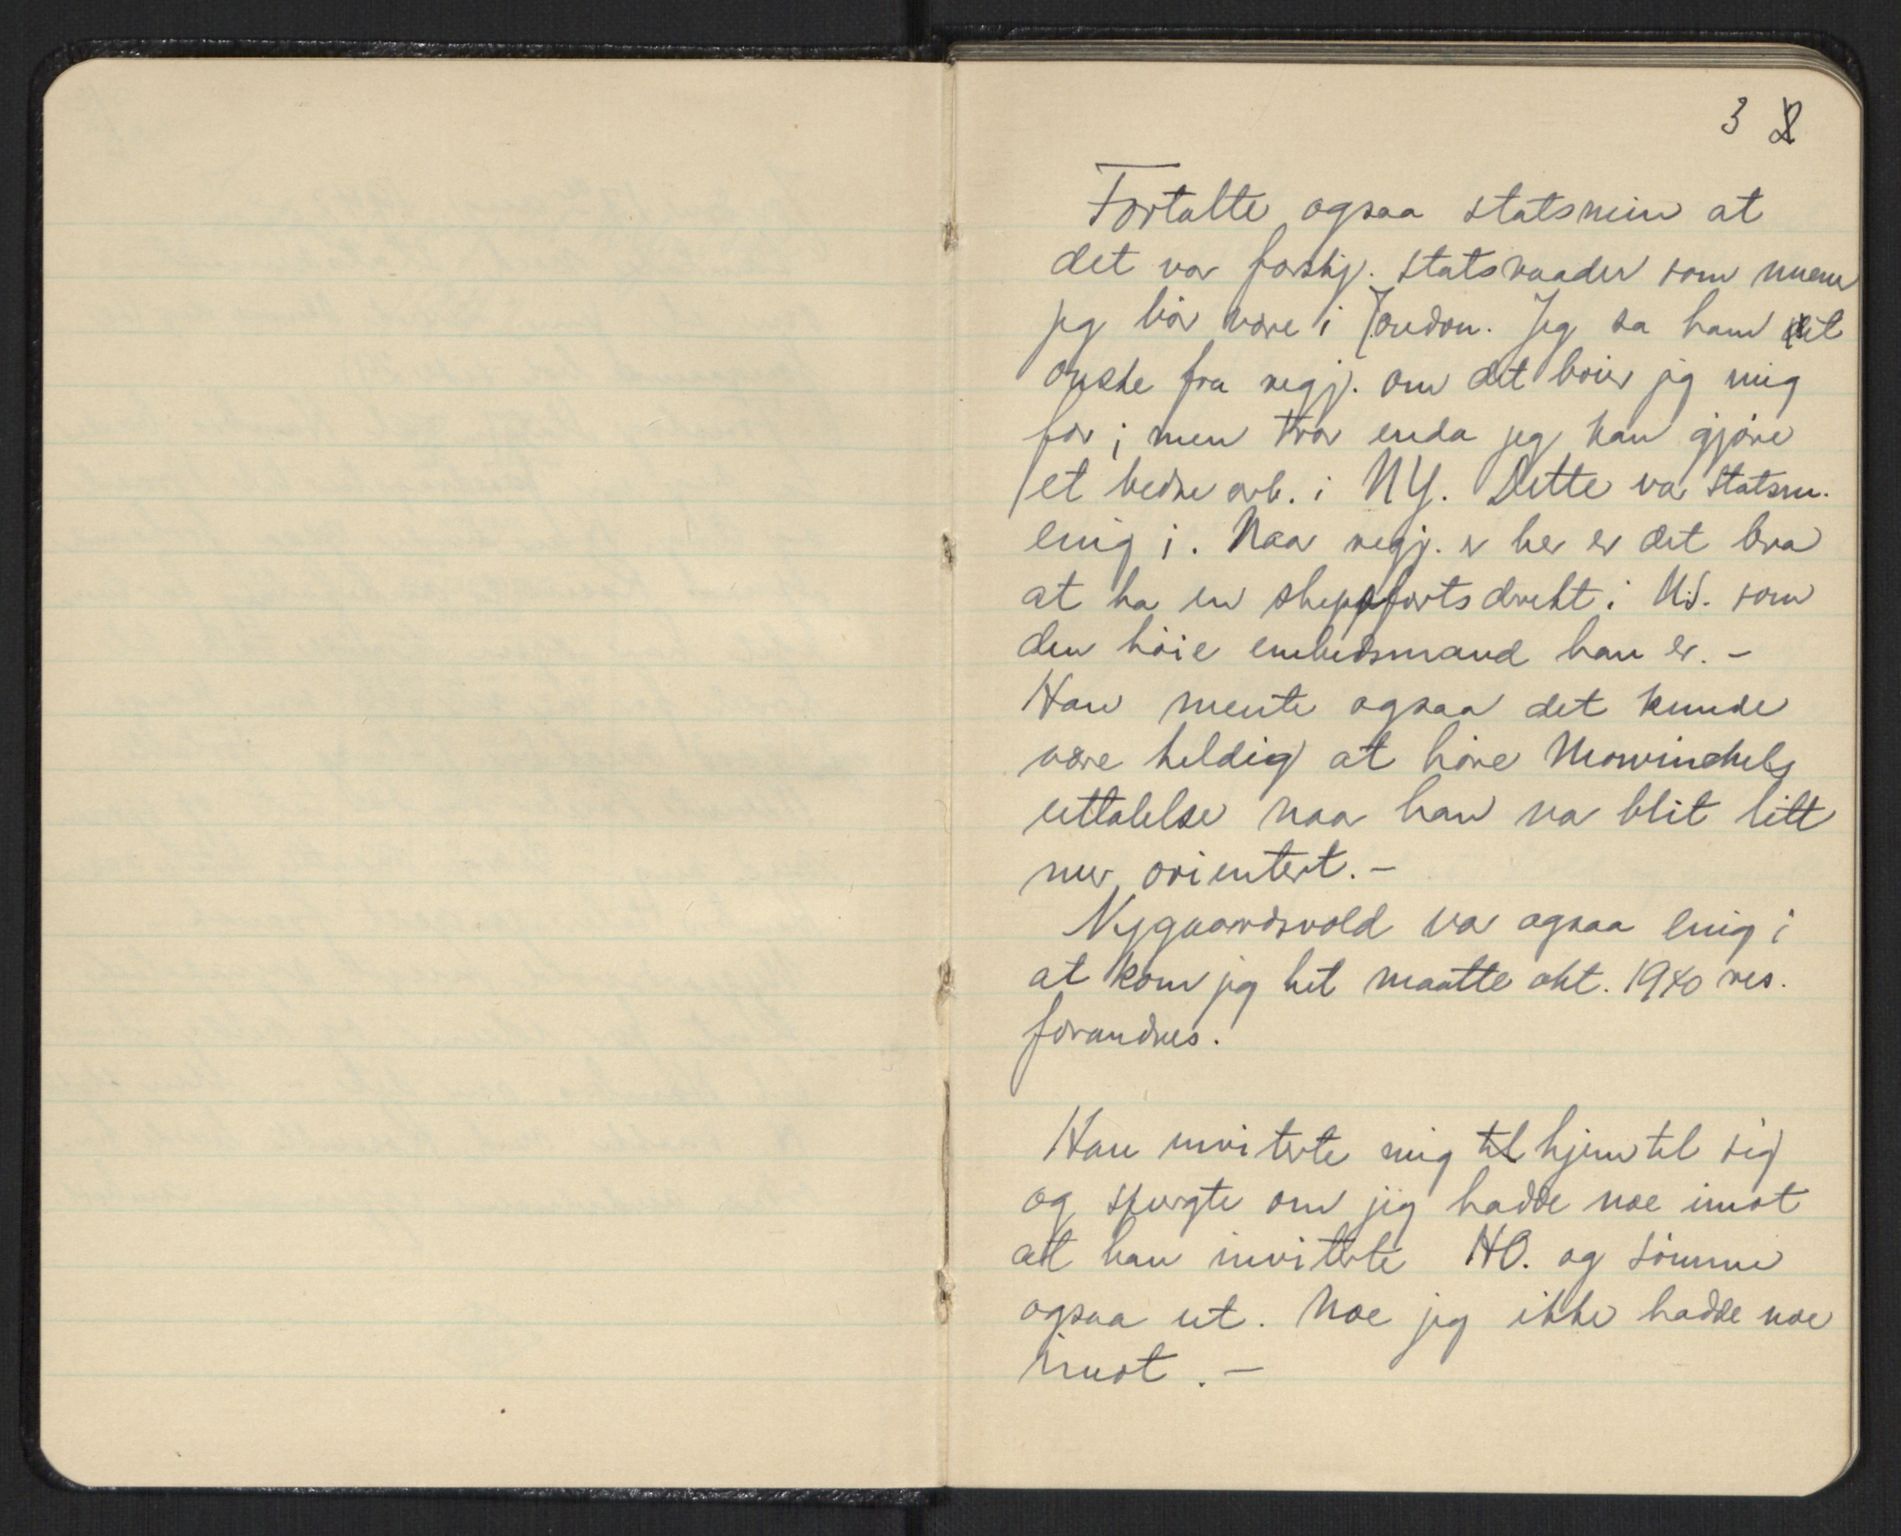 3 2
Fortalte ogsaa statsmin at
det var forskj. statsraader som mener
jeg bør være i London. Jeg sa ham et
ønske fra regj. om det bøier jeg mig
for; men tror enda jeg kan gjøre
et bedre arb. i NY. Dette va statsm.
enig i. Naar regj. er her er det bra
at ha en skippsfartsdirekt i U.S. som
den høie embedsmand han er. -
Han mente ogsaa det kunde
være heldig at høre Mowinckels
uttalelse naa han va blit litt
mer orientert. -
Nygaardsvold var ogsaa enig i
at kom jeg hit maatte okt. 1940 res.
forandres.
Han inviterte mig til hjem til sig
og spurgte om jeg hadde noe imot
at han inviterte HO. og Sømme
ogsaa ut. Noe jeg ikke hadde noe
imot. -